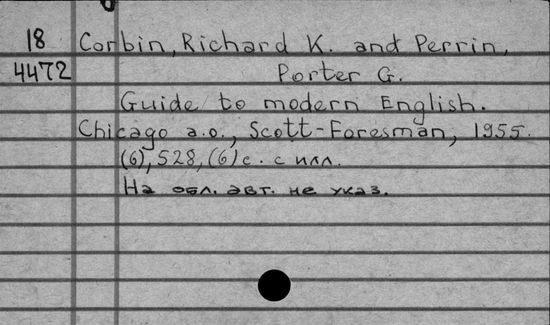 18 Corbin, Richard K. and Perrin,
4472 Porter G.
Guide to modern English.
Chicago a.o., Scott-Foresman, 1955.
(6), 528, (6) с. с илл.
На обл. авт. не указ.